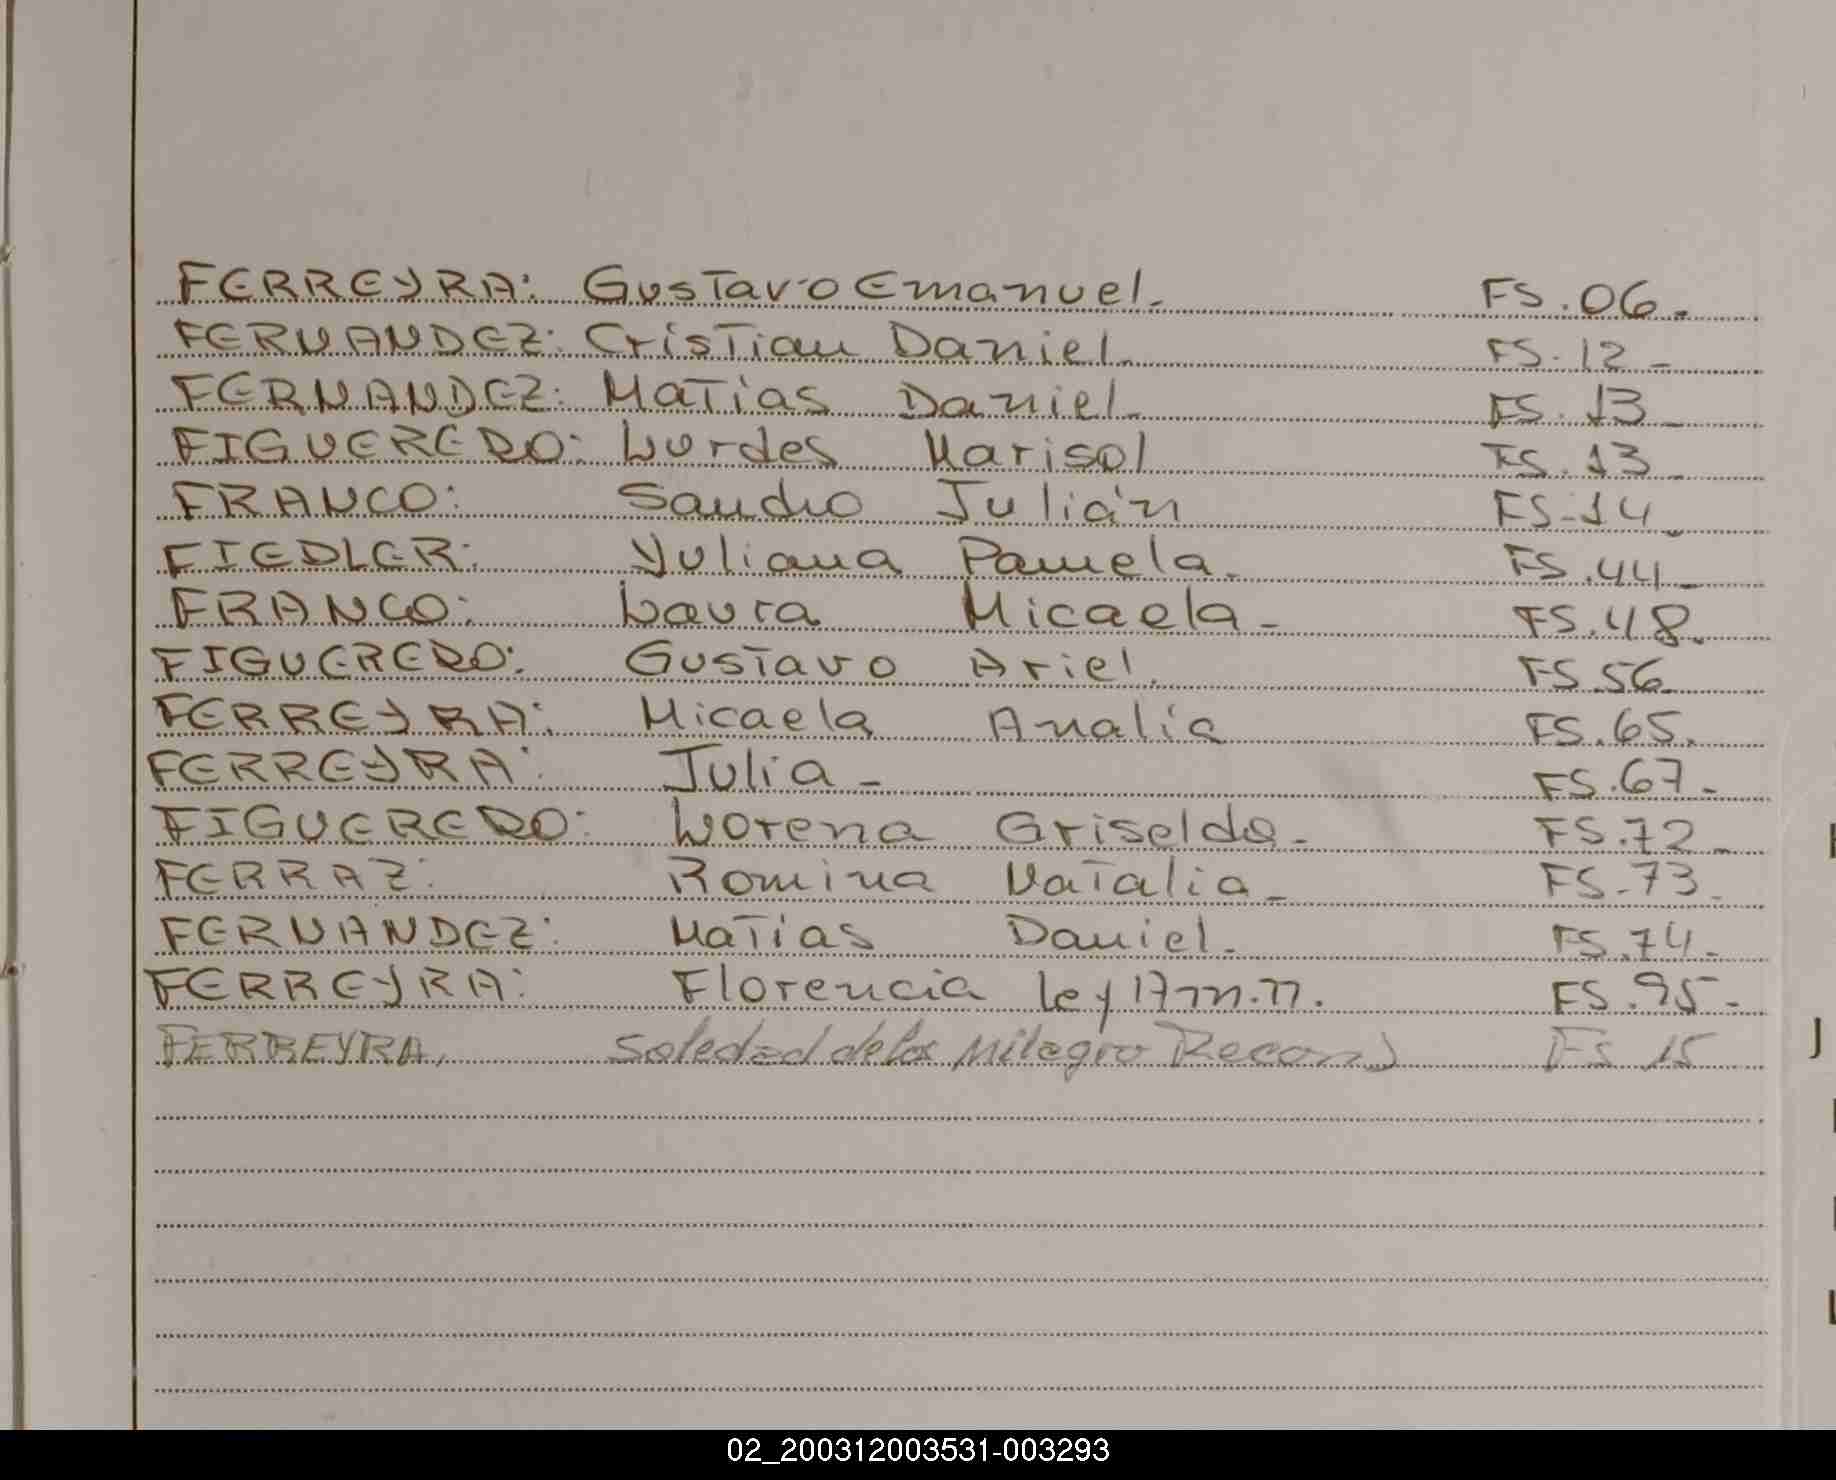 FERREYRA: Gustavo Emanuel. FS. 06.-
FERNANDEZ: Cristian Daniel. FS. 12-
FERNANDEZ: Matias Daniel. FS. 13-
FIGUEREDO: Lurdes Marisol FS. 13-
FRANCO: Sandro Julián FS-14-
FIEDLER: Yuliana Pamela. FS.44-
FRANCO: Laura Micaela- FS.48.
FIGUEREDO: Gustavo Ariel. FS.56.
FERREYRA: Micaela Analia FS.65.
FERREYRA: Julia- FS.67.-
FIGUEREDO: Lorena Griselda- FS.72-
FERRAZ: Romina Natalia- FS.73-
FERNANDEZ: Matias Daniel- FS.74.-
FERREYRA: Florencia Ley 17m.n. FS.95.-
FERREYRA, Soledad de los Milagro Recon) Fs 15
J
02_200312003531-003293